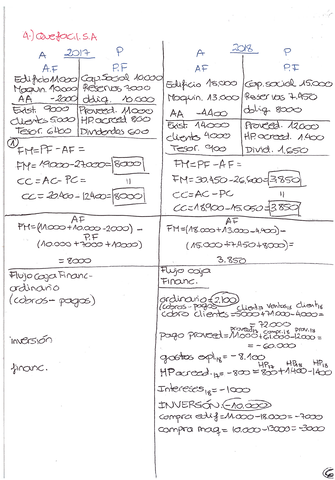 4.) Quefocil.S.A
A 2017 P
A.F P.F
Edificio 11000 Cap. Social 10.000
Maquin. 10.000 Reservas 7000
AA -2000 oblig. 10.000
Exist. 9000 Proveed. 11000
clientes 5000 HP. acreed 800
Tesor. 6400 Dividendos 600
1
FM = PF - AF =
FM = 19000 - 27.000 = 8000
CC = AC - PC =
CC = 20.400 - 12400 = 8000
AF
FM = (11.000 + 10.000 - 2000) -
(10.000 + 7000 + 10000)
= 8000
Flujo caja Financ.
ordinario
(cobros - pagos)
inversión
financ.
A 2018 P
AF P.F
Edificio 18.000 Cap. social 15.000
Maquin. 13.000 Reservas 7.450
AA -4400 oblig. 8000
Exist. 14000 Proveed. 12000
clientes 4000 HP. acreed. 1.400
Tesor. 900 Divid. 1.650
FM = PF - AF =
FM = 30.450 - 26.600 = 3.850
CC = AC - PC
CC = 18.900 - 15.050 = 3.850
AF
FM = (18.000 + 13.000 - 4.400) -
(15.000 + 7.450 + 8000) =
3.850
Flujo caja
Financ.
ordinario = 2.100
(cobros - pagos)
cobro clientes = 5000 + 71.000 - 4000 =
= 72.000
pago proveed = 11000 + 61.000 - 12.000 =
= -60.000
gastos expl.18 = -8.100
HP acreed.17 = -800 = 800 + 1.400 - 1400
Intereses18 = -1000
INVERSIÓN: -10.000
compra edif = 11.000 - 18.000 = -7000
compra maq = 10.000 - 13000 = -3000